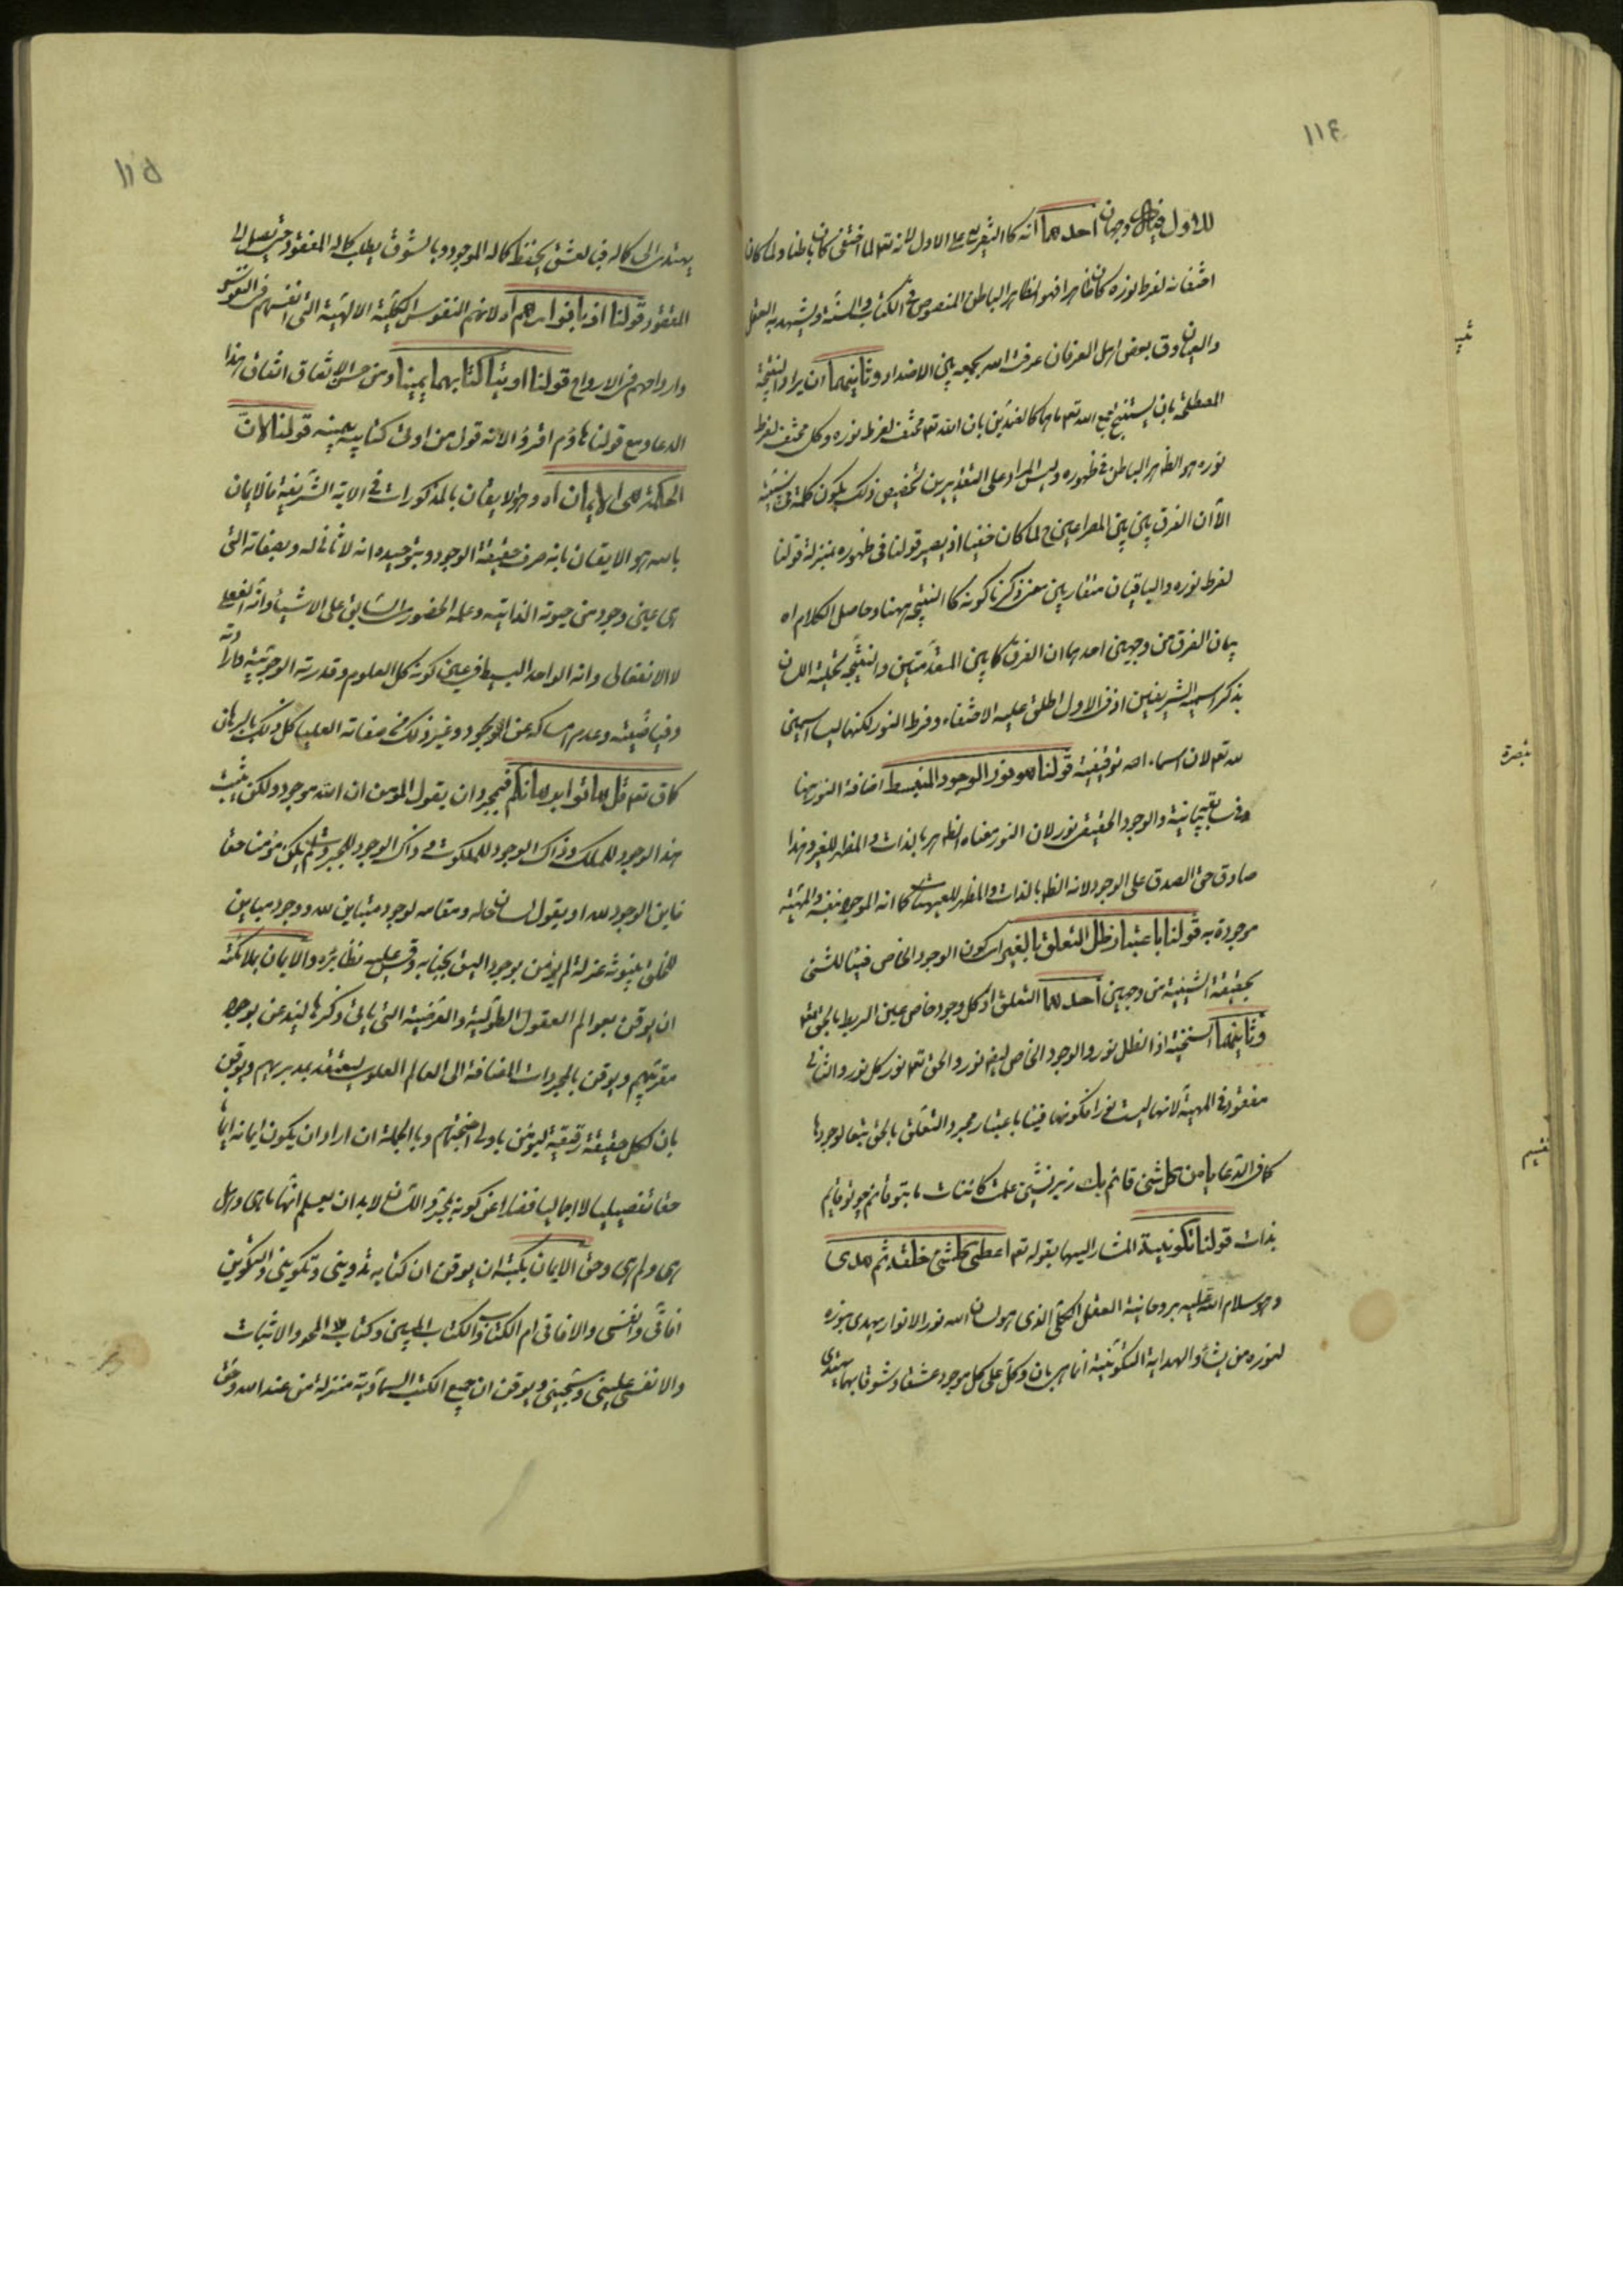 ١١٤
للاول فيه وجهان احدهما انه كالتفريع على الاول لانه تعالى لما اختفى كان باطنا ولما كان
اختفائه لفرط نوره كان ظاهرا فهو الظاهر الباطن المنصوص في الكتاب والسنة ويشهد به العقل
والعيان وق بعض اهل العرفان عرفت الله بجمعه بين الاضداد وثانيهما ان يراد النتيجة
المصطلحة بان يستنتج مع الله تعم بان الله تعم مختف لفرط نوره وكل مختف لفرط
نوره هو الظاهر الباطن في ظهوره وليس المراد على التقديرين تخصيص ذلك بكون كلمة
الا ان الفرق بين بين المصراعين ح لما كان خفيا اذ يصير قولنا في ظهوره بمنزلة قولنا
لفرط نوره والباقيان متقاربين معنى ذكرنا كونه كالنتيجة ههنا وحاصل الكلام اه
بيان الفرق من وجهين احدهما ان الفرق كما بين المقدمتين والنتيجة
بذكر اسميه الشريفين اذ في الاول اطلق عليه الاختفاء وفرط النور لكنهما ليسا اسمين
لله تعم لان اسماء الله توقيفية قولنا هو نور الوجود المنبسط اضافة النور هنا
بيانية والوجود الحقيقي نور لان النور معناه الظاهر بالذات والمظهر للغير وهذا
صادق حق الصدق على الوجود لانه الظاهر بالذات والمظهر للمهيات كما انه الموجود بنفسه والمهية
موجودة به قولنا باعتبار ظل التعلق بالغير اى كون الوجود الخاص فيئا للشئ
بحقيقة الشيئية من وجهين احدهما التعلق اذ كل وجود خاص عين الربط بالحق تعم
وثانيهما السنخية اذ الظل نور والوجود الخاص ايضا نور والحق تعم نور كل نور والثانى
مفقود في المهية لانها ليست نورا فكونها فيئا باعتبار مجرد التعلق بالحق تبعا لوجودها
كما في الدعا يا من كل شئ قائم بك زير نشين علمت كائنات ما بتو قائم چو تو قائم
بذات قولنا تكوينية المشار اليها بقوله تعم اعطى كلشئ خلقه ثم هدى
وهو سلام الله عليه بروحانية العقل الكلى الذى هو لسان الله نور الانوار يهدى بنوره
لنوره من يشاء والهداية التكوينية انما هى بان وكل على كل موجود عشقا وشوقا بهما يهتدى
نتيجة
تبصرة
تقسيم
١١٥
يهتدى الى كماله فبالعشق يحفظ كماله الموجود وبالشوق يطلب كماله المفقود حتى يصل الى
المفقود قولنا اذ بافواههم اه لانهم النفوس الكلية الالهية التى انفسهم في النفوس
وارواحهم في الارواح قولنا اوتينا كتابهما يمينا ومن حسن الاتفاق اتفاق هذا
الدعا ومع قولنا هاؤم اقرؤا لانه قول من اوتى كتابيه بيمينه قولنا لان
الحكمة هى الايمان اه وهو الايقان بالمذكورات في الاية الشريفة فالايمان
بالله هو الايقان بانه صرف حقيقة الوجود وبتوحيده انه لا ثانى له وبصفاته التى
هى عين وجوده من حيوته الذاتية وعلمه الحضورى السابق على الاشياء وانه الفعلى
لا الانفعالى وانه الواحد البسيط في عين كونه كل العلوم وقدرته الوجوبية وارادته
وفياضيته وعدم امساكه عن الجود وغير ذلك من صفاته العليا كل ذلك بالبرهان
كما ق تعم قل هاتوا برهانكم فبمجرد ان يقول المومن ان الله موجود ولكن يثبت
هذا الوجود للملك وذاك الوجود للملكوت وذاك الوجود للجبروت لم يكن مؤمنا حقا
فاين الوجود لله او يقول لسان حاله ومقامه لوجود متباين لله ووجود مباين
للخلق بينونة عزلة لم يؤمن بوجود اليق بجنابه وقس عليه نظائره والايمان بملائكته
ان يوقن بعوالم العقول الطولية والعرضية التى ياتى ذكرها ليذعن بوجود
مقربيهم ويوقن بالمجردات المضافة الى العالم العلوى ليعتقد بمدبريهم ويوقن
بان لكل حقيقة رقيقة ليؤمن باولى اجنحتهم وبالجملة ان اراد ان يكون ايمانه ايمانا
حقا تفصيليا لا اجماليا فضلا عن كونه بمجرد اللسان لا بد ان يعلم انها ما هى وهل
هى ولم هى وحق الايمان بكتبه ان يوقن ان كتابه تدوينى وتكوينى والتكوينى
افاقى وانفسى والافاقى ام الكتاب والكتاب المبين وكتاب المحو والاثبات
والانفسى علينى وسجينى ويوقن ان جميع الكتب السماوية منزلة من عند الله وحق